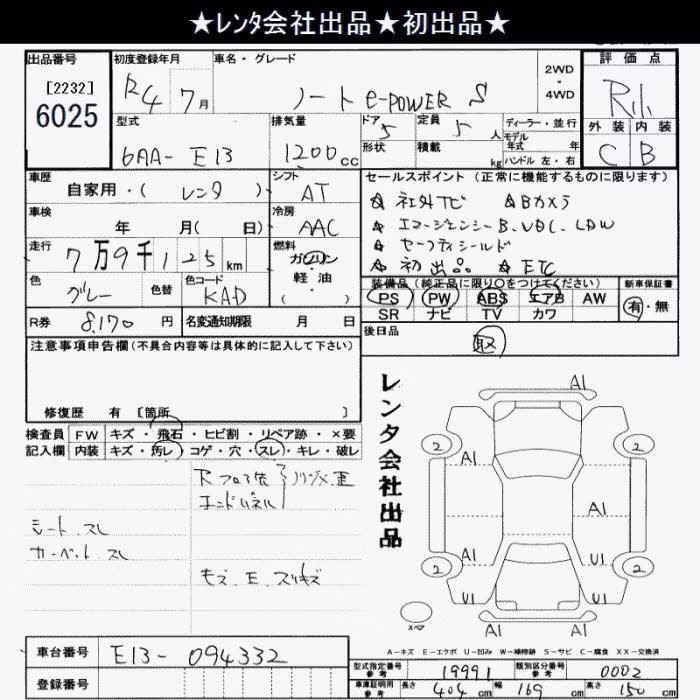 ★レンタ会社出品★初出品★
出品番号
[2232]
6025
初度登録年月
R4年7月
車名・グレード
ノート e-POWER S
2WD
・
4WD
評価点
外装 内装
C B
型式
6AA-E13
排気量
1200cc
ドア
5
定員
5人
ディーラー・並行
モデル
年式 年
形状
積載 kg
ハンドル 左・右
車歴
自家用・( レンタ )
シフト
AT
車検
年 月( 日)
冷房
AAC
走行
7万9千125km
燃料
ガソリン
・
軽・油
( )
色
グレー
色替
色コード
KAD
R券 8,170円
名変通知期限 月 日
セールスポイント (正常に機能するものに限ります)
☆ 社外ナビ ☆Bカメラ
☆ エマージェンシーB.VDC.LDW
☆ セーフティシールド
☆ 初出品 ☆ ETC
装備品(純正品に限り○をつけてください)
PS PW ABS エアB AW
SR ナビ TV カワ
新車保証書
有・無
後日品
取
注意事項申告欄(不具合内容等は具体的に記入して下さい)
修復歴 有 [箇所 ]
検査員
記入欄
FW キズ・飛石・ヒビ割・リペア跡・×要
内装 キズ・汚レ・コゲ・穴・スレ・キレ・破レ
Rフロア
エンドパネル
シート.スレ
カーペット.スレ
レンタ会社出品
A1
2 2
A1
A1
A1
A1 U1
2 2
U1
A1
スペア
A-キズ E-エクボ U-凹み W-補修跡 S-サビ C-腐食 XX-交換済
車台番号 E13-094332
登録番号
型式指定番号
参考
19991
類別区分番号
参考
0002
車庫証明用
参考
長さ 404cm 幅 169cm 高さ 150cm